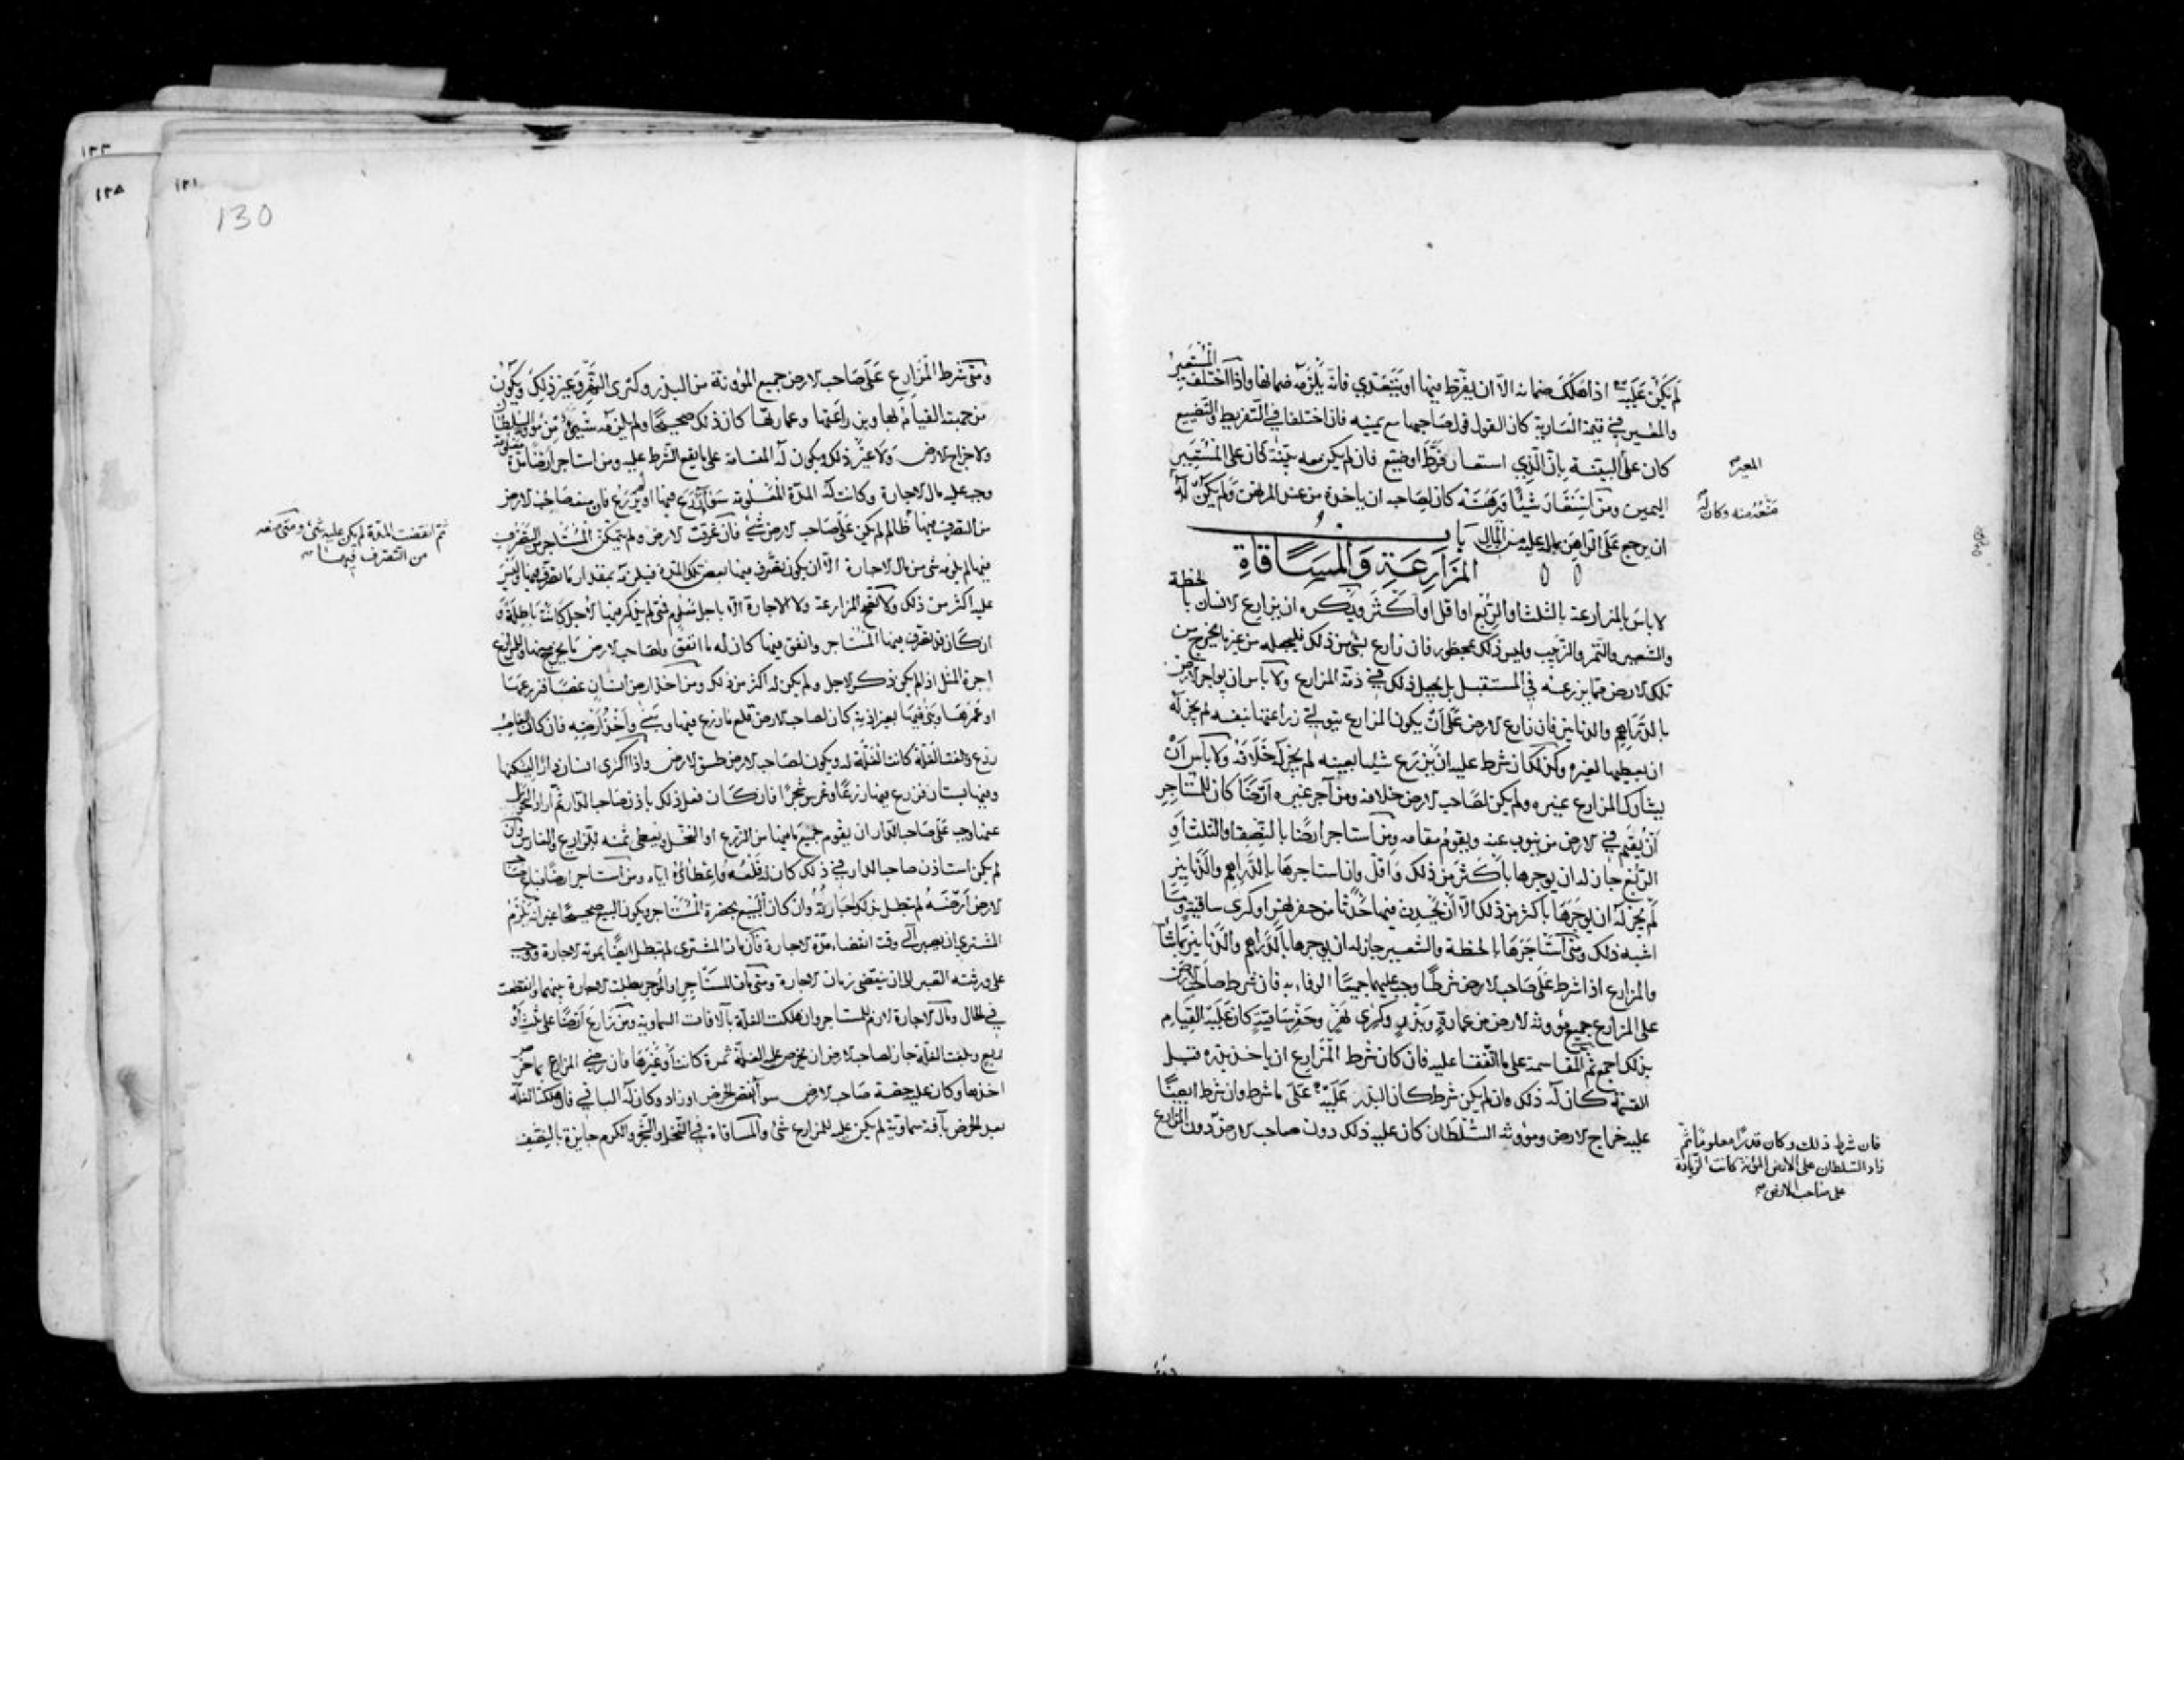 لم يكن عليه اذا هلك ضمانه الا ان يفرّط فيها او يتعدي فانه يلزمه ضمانها واذا اختلف المستعير
والمعير في قيمة العارية كان القول قول صاحبها مع يمينه فان اختلفا في التفريط والتضييع
كان على البيّنة بان الذي استعار فرّط او ضيّع فان لم يكن معه بيّنة كان على المستعير
المعير
اليمين ومن استعار شيئا فرهنه كان لصاحبه ان ياخذه من عند المرتهن ولم يكن له
منعه منه وكان له
ان يرجع على الراهن بماله عليه من المال باب
المزارعة والمساقاة
لا باس بالمزارعة بالثلث او الربع او اقل او اكثر ويكره ان يزارع الانسان بالحنطة
والشعير والتمر والزبيب وليس ذلك بمحظور فان زارع بشي من ذلك فليجعله من غير ما يخرج من
تلك الارض مما يزرعه في المستقبل بل يجعل ذلك في ذمة المزارع ولا باس ان يواجر الارض
بالدراهم والدنانير فان زارع الارض على ان يكون المزارع يتولى زراعتها بنفسه لم يجز له
ان يعطيها لغيره وكذلك ان شرط عليه ان يزرع شيئا بعينه لم يجز له خلافه ولا باس ان
يشارك المزارع غيره ولم يكن لصاحب الارض خلافه ومن آجر غيره ارضا كان للمستاجر
ان يقيم في الارض من ينوب عنه ويقوم مقامه ومن استاجر ارضا بالنصف او الثلث او
الربع جاز له ان يوجرها باكثر من ذلك واقل وان استاجرها بالدراهم والدنانير
لم يجز له ان يوجرها باكثر من ذلك الا ان يحدث فيها حدثا من حفر نهر او كري ساقية وما
اشبه ذلك ومتى استاجرها بالحنطة والشعير جاز له ان يوجرها بالدراهم والدنانير بما شا
والمزارع اذا شرط على صاحب الارض شرطا وجب عليهما جميعا الوفاء به فان شرط صاحب الارض
على المزارع جميع مؤونة الارض من عمارة وبذر وكرى نهر وحفر ساقية كان عليه القيام
بذلك اجمع ثم المقاسمة على ما اتفقا عليه فان كان شرط المزارع ان ياخذ بذره قبل
القسمة كان له ذلك وان لم يكن شرط كان البذر عليه على ما شرط وان شرط ايضا
عليه خراج الارض ومؤونة السلطان كان عليه ذلك دون صاحب الارض دون المزارع
فان شرط ذلك وكان قدرا معلوما ثم
زاد السلطان على الارض المؤنة كانت الزيادة
على صاحب الارض صح
١٣١
130
١٣٣
١٣٥
ومتى شرط المزارع على صاحب الارض جميع المؤونة من البذر وكرى النهر وغير ذلك ويكون
من جهته القيام لها وبزراعتها وعمارتها كان ذلك صحيحا ولم يلزمه شيئ من مؤونة السلطان
ولا خراج الارض ولا غير ذلك ويكون له المقاسمة على ما يقع الشرط عليه ومن استاجر ارضا من
وجب عليه مال الاجارة وكانت له المدة المعلومة سوا زرع فيها او لم يزرع فان منعه صاحب الارض
ثم انقضت المدة لم يكن عليه شئ ومتى منعه
من التصرف فيها صح
من التصرف فيها ظالم لم يكن على صاحب الارض شئ فان غرقت الارض ولم يتمكن المستاجر من التصرف
فيها لم يلزمه شي من مال الاجارة الا ان يكون تصرف فيها بعض تلك المدة فيلزمه بمقدار ما تصرف فيها وليس
عليه اكثر من ذلك ولا تصح المزارعة ولا الاجارة الا باجل معلوم فمتى لم يذكر فيها الاجل كانت باطلة و
ان كان قد تصرف فيها المستاجر وانفق فيها كان له ما انفق ولصاحب الارض ما يخرج منها وللمزارع
اجرة المثل اذا لم يكن ذكر الاجل ولم يكن له اكثر من ذلك ومن اخذ ارض انسان غصبا فزرعها
او عمرها وبنى فيها بغير اذنه كان لصاحب الارض قلع ما زرع فيها وبنى واخذ ارضه فان كان الغاصب
زرع وبلغت الغلة كانت الغلة له ويكون لصاحب الارض طسق الارض واذا اكترى انسان دارا ليسكنها
وفيها بستان فزرع فيها زرعا وغرس شجرا فان كان فعل ذلك باذن صاحب الدار ثم اراد التحول
عنها وجب على صاحب الدار ان يقوم جميع ما فيها من الزرع او النخل ويعطي ثمنه للزارع والغارس وان
لم يكن استاذن صاحب الدار في ذلك كان له قلعه واعطائه اياه ومن استاجر ارضا فباع صاحب
الارض ارضه لم تبطل بذلك اجارته وان كان البيع بحضرة المستاجر ويكون البيع صحيحا غير انه يلزم
المشتري ان يصبر الى وقت انقضاء مدة الاجارة فان مات المشتري لم تبطل ايضا بموته الاجارة ووجب
على ورثته الصبر الى ان ينقضي زمان الاجارة ومتى مات المستاجر او المؤجر بطلت الاجارة بينهما وانقطعت
في الحال ومال الاجارة لازم للمستاجر وان هلكت الغلة بالافات السماوية ومن زارع ارضا على ثلث او
ربع وبلغت الغلة جاز لصاحب الارض ان يخرص عليه الغلة ثمرة كانت او غيرها فان رضي المزارع بما خرص
اخذها وكان عليه حصة صاحب الارض سوا نقص الخرص او زاد وكان له الباقي فان هلكت الغلة
بعد الخرص بآفة سماوية لم يكن عليه للمزارع شئ والمساقاة في النخل والشجر والكرم جايزة بالنصف